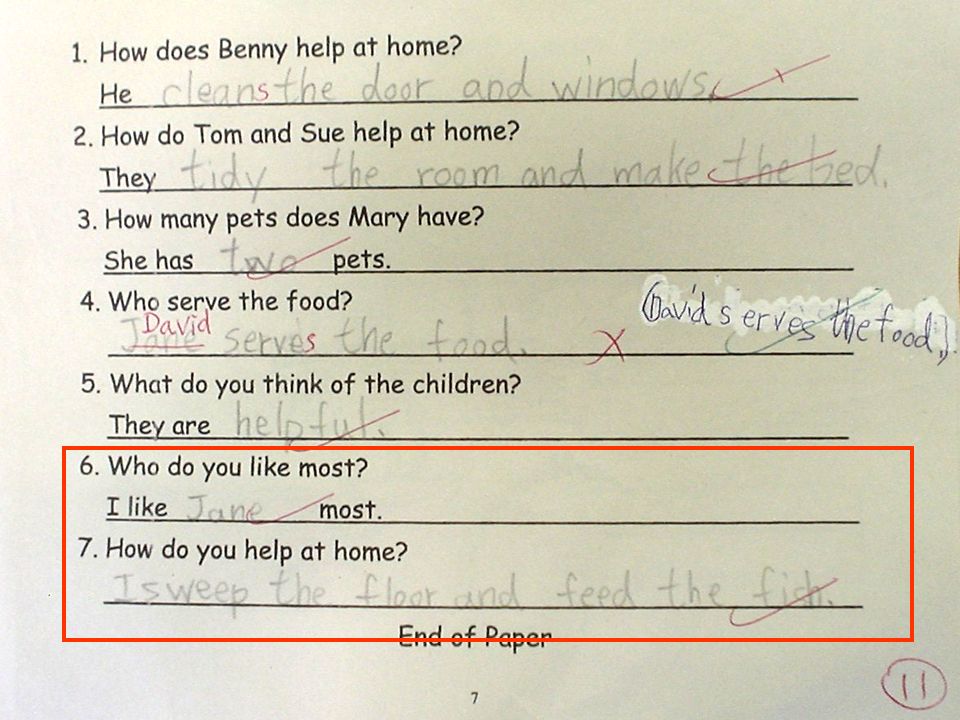 1. How does Benny help at home?
He cleans the door and windows.
2. How do Tom and Sue help at home?
They tidy the room and make the bed.
3. How many pets does Mary have?
She has two pets.
4. Who serve the food?
David
(David serves the food.)
Jane serves the food.
5. What do you think of the children?
They are helpful.
6. Who do you like most?
I like Jane most.
7. How do you help at home?
I sweep the floor and feed the fish.
End of Paper
7
11